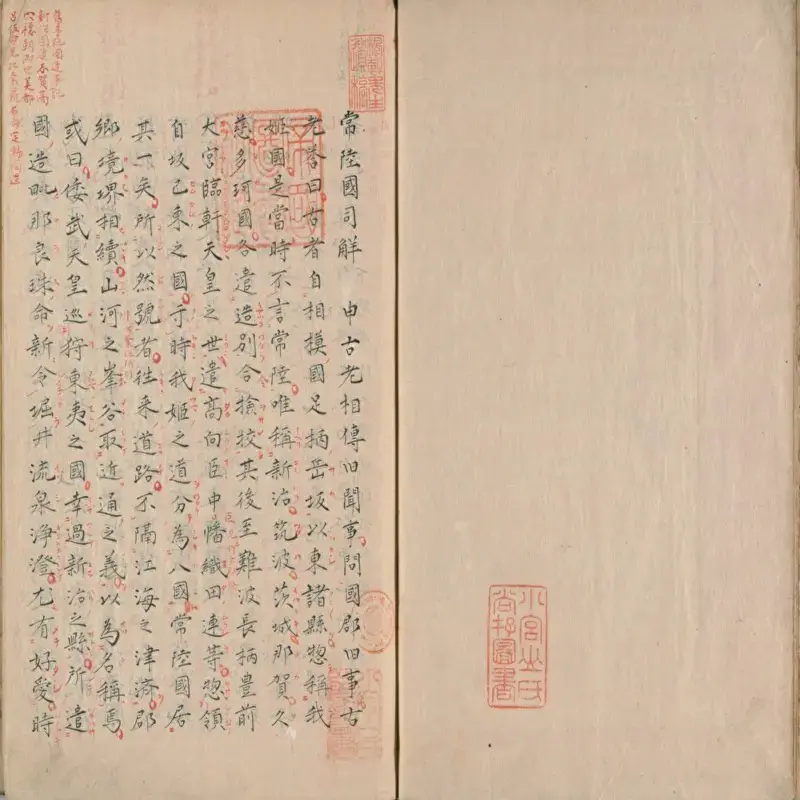 常陸國司解 申古老相傳旧聞事問國郡旧事古
老荅曰古者自相摸國足柄岳坂以東諸縣惣稱我
姫國是當時不言常陸唯稱新治筑波茨城那賀久
慈多珂國各遣造別令撿挍其後至難波長柄豊前
大宮臨軒天皇之世遣高向臣中幡織田連等惣領
自坂已東之國于時我姫之道分為八國常陸國居
其一矣所以然號者往来道路不隔江海之津濟郡
鄉境堺相續山河之峯谷取近通之義以為名稱焉
或曰倭武天皇巡狩東夷之國幸過新治之縣所遣
國造毗那良珠命新令堀井流泉淨澄尤有好愛時
小宮山氏
圖書